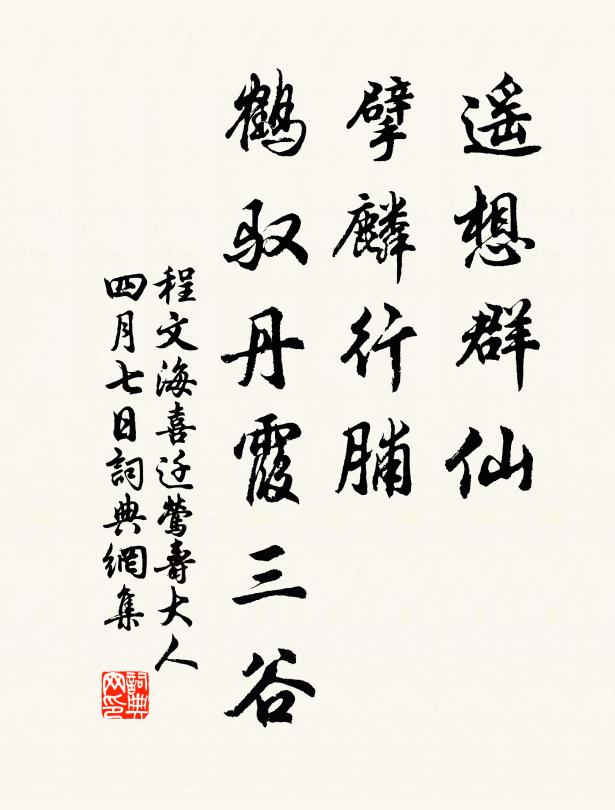 遥想群仙
擘麟行脯
鹤驭丹霞三谷
程文海喜迁莺寿大人
四月七日詞典網集
詞典
网印